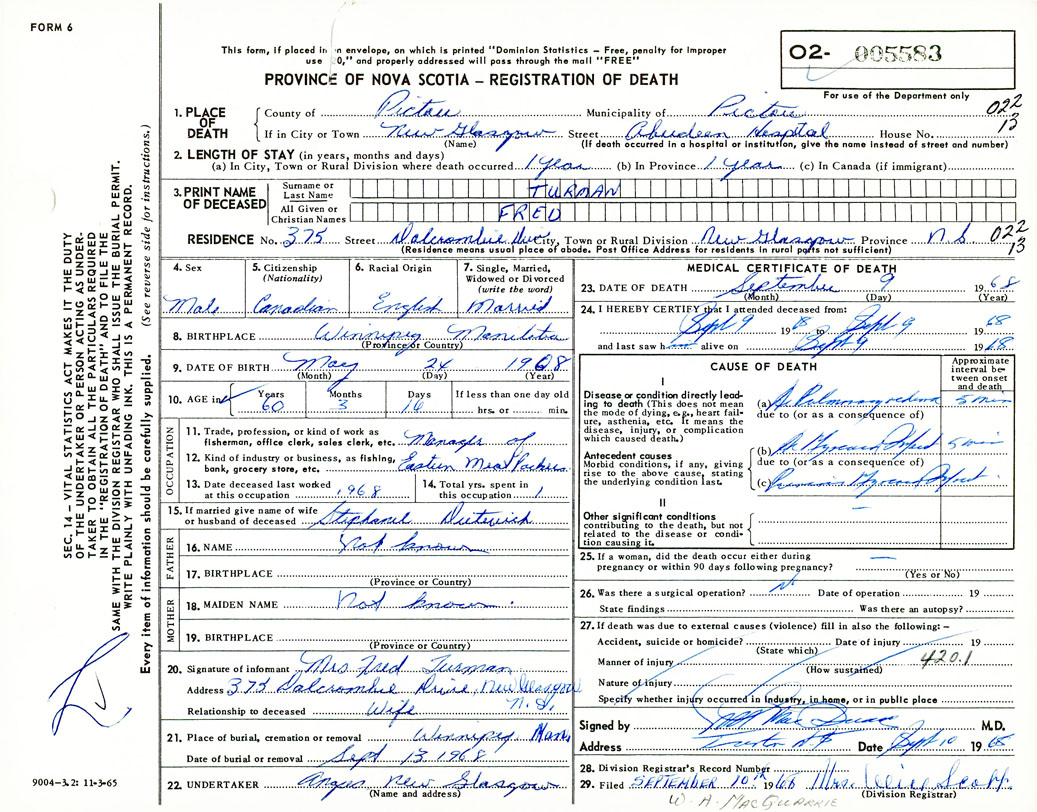 FORM 6
This form, if placed in an envelope, on which is printed "Dominion Statistics – Free, penalty for improper
use 0," and properly addressed will pass through the mail "FREE"
O2- 005583
PROVINCE OF NOVA SCOTIA – REGISTRATION OF DEATH
For use of the Department only
022
13
1. PLACE OF DEATH
County of Pictou Municipality of Pictou
If in City or Town New Glasgow Street Aberdeen Hospital House No.
(Name) (If death occurred in a hospital or institution, give the name instead of street and number)
2. LENGTH OF STAY (in years, months and days)
(a) In City, Town or Rural Division where death occurred 1 Year (b) In Province 1 Year (c) In Canada (if immigrant)
3. PRINT NAME OF DECEASED
Surname or Last Name TURMAN
All Given or Christian Names FRED
RESIDENCE No. 375 Street Dalcrombie Drive City, Town or Rural Division New Glasgow Province N.S. 022
13
(Residence means usual place of abode. Post Office Address for residents in rural parts not sufficient)
4. Sex
Male
5. Citizenship (Nationality)
Canadian
6. Racial Origin
English
7. Single, Married, Widowed or Divorced (write the word)
Married
8. BIRTHPLACE Winnipeg Manitoba
(Province or Country)
9. DATE OF BIRTH May 24 1908
(Month) (Day) (Year)
10. AGE in Years Months Days If less than one day old
60 3 16 hrs. or min.
OCCUPATION
11. Trade, profession, or kind of work as fisherman, office clerk, sales clerk, etc. Manager of
12. Kind of industry or business, as fishing, bank, grocery store, etc. Eastern Meat Packers
13. Date deceased last worked at this occupation 1968
14. Total yrs. spent in this occupation 1
15. If married give name of wife or husband of deceased Stephanie
FATHER
16. NAME Not known
17. BIRTHPLACE
(Province or Country)
MOTHER
18. MAIDEN NAME Not known
19. BIRTHPLACE
(Province or Country)
20. Signature of informant Mrs. Fred Turman
Address 375 Dalcrombie Drive, New Glasgow
N.S.
Relationship to deceased Wife
21. Place of burial, cremation or removal Winnipeg Man.
Date of burial or removal Sept 13 1968
22. UNDERTAKER Angus New Glasgow
(Name and address)
MEDICAL CERTIFICATE OF DEATH
23. DATE OF DEATH September 9 1968
(Month) (Day) (Year)
24. I HEREBY CERTIFY that I attended deceased from:
Sept 9 1968 to Sept 9 1968
and last saw him alive on Sept 9 1968
CAUSE OF DEATH
Approximate interval between onset and death
I
Disease or condition directly leading to death (This does not mean the mode of dying, e.g., heart failure, asthenia, etc. It means the disease, injury, or complication which caused death.)
(a) Ac Pulmonary edema 5 min
due to (or as a consequence of)
Antecedent causes
Morbid conditions, if any, giving rise to the above cause, stating the underlying condition last.
(b) Ac Myocard Infarct 5 min
due to (or as a consequence of)
(c) Previous Myocard Infarct
II
Other significant conditions contributing to the death, but not related to the disease or condition causing it.
25. If a woman, did the death occur either during pregnancy or within 90 days following pregnancy? —
(Yes or No)
26. Was there a surgical operation? no Date of operation 19
State findings Was there an autopsy?
27. If death was due to external causes (violence) fill in also the following: –
Accident, suicide or homicide? Date of injury 19
(State which)
Manner of injury 420.1
(How sustained)
Nature of injury
Specify whether injury occurred in industry, in home, or in public place
Signed by M.D.
Address Date Sept 10 1968
28. Division Registrar's Record Number
29. Filed SEPTEMBER 10th 1968 Mrs.
(Division Registrar)
W. A. MacQUARRIE
SEC. 14 – VITAL STATISTICS ACT MAKES IT THE DUTY
OF THE UNDERTAKER OR PERSON ACTING AS UNDER-
TAKER TO OBTAIN ALL THE PARTICULARS REQUIRED
IN THE "REGISTRATION OF DEATH" AND TO FILE THE
SAME WITH THE DIVISION REGISTRAR WHO SHALL ISSUE THE BURIAL PERMIT.
WRITE PLAINLY WITH UNFADING INK. THIS IS A PERMANENT RECORD.
Every item of information should be carefully supplied. (See reverse side for instructions.)
9004-3.2: 11-3-65